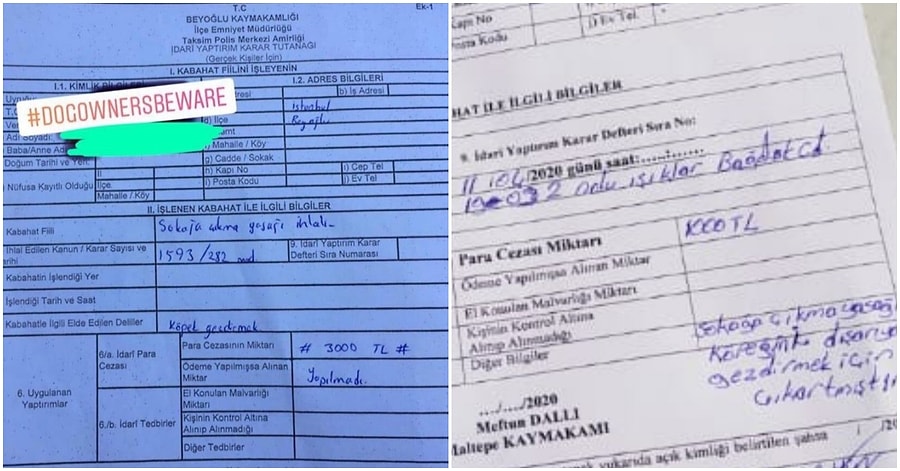 T.C
Ek-1
BEYOĞLU KAYMAKAMLIĞI
İlçe Emniyet Müdürlüğü
Taksim Polis Merkezi Amirliği
İDARİ YAPTIRIM KARAR TUTANAĞI
(Gerçek Kişiler İçin)
I. KABAHAT FİİLİNİ İŞLEYENİN
I.1. KİMLİK
I.2. ADRES BİLGİLERİ
#DOGOWNERSBEWARE
b) İş Adresi
İstanbul
d) İlçe
Beyoğlu
Adı Soyadı
Baba/Anne Adı
Mahalle / Köy
Doğum Tarihi ve Yeri
g) Cadde / Sokak
Nüfusa Kayıtlı Olduğu
İl
h) Kapı No
i) Cep Tel
İlçe
i) Posta Kodu
j) Ev Tel
Mahalle / Köy
II. İŞLENEN KABAHAT İLE İLGİLİ BİLGİLER
Kabahat Fiili
Sokağa çıkma yasağı ihlali
İhlal Edilen Kanun / Karar Sayısı ve
1593/282 md
9. İdari Yaptırım Karar
Defteri Sıra Numarası
Kabahatin İşlendiği Yer
İşlendiği Tarih ve Saat
Kabahatle İlgili Elde Edilen Deliller
Köpek gezdirmek
6. Uygulanan
Yaptırımlar
6/a. İdari Para
Cezası
Para Cezasının Miktarı
# 3000 TL #
Ödeme Yapılmışsa Alınan
Miktar
Yapılmadı.
6./b. İdarî Tedbirler
El Konulan Malvarlığı
Miktarı
Kişinin Kontrol Altına
Alınıp Alınmadığı
Diğer Tedbirler
Kapı No
Posta Kodu
j) Ev Tel.
BAHAT İLE İLGİLİ BİLGİLER
9. İdari Yaptırım Karar Defteri Sıra No:
11/04/2020 günü saat:
ışıklar Bağdat Cd.
Para Cezası Miktarı
1000 TL
Ödeme Yapılmışsa Alınan Miktar
El Konulan Malvarlığı Miktarı
Kişinin Kontrol Altına
Alınıp Alınmadığı
Diğer Bilgiler
Sokağa çıkma yasağı
Köpeğini dışarıya
gezdirmek için
çıkartmıştır
..../..../2020
Meftun DALLI
Maltepe KAYMAKAMI
yukarıda açık kimliği belirtilen şahsa